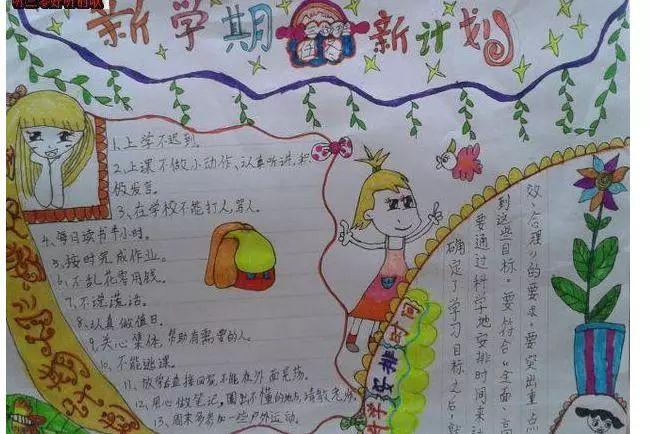 新学期 新计划
1、上学不迟到。
2、上课不做小动作、认真听讲,积
极发言。
3、在学校不能打人,骂人。
4、每日读书半小时。
5、按时完成作业。
6、不乱花零用钱。
7、不说谎话。
8、认真做值日。
9、关心集体,帮助有需要的人。
10、不能逃课。
11、放学后直接回家,不能在外面晃荡。
12、用心做笔记,圈出不懂的地方,请教老师
13、周末多参加一些户外运动。
科学安排时间
确定了学习目标之后,就
要通过科学地安排时间来达
到这些目标。要符合“全面、高
效、合理”的要求,要突出重点